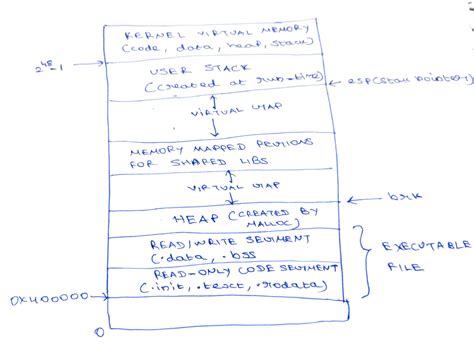 KERNEL VIRTUAL MEMORY
(code, data, heap, stack)
2^48-1
USER STACK
(created at run-time)
esp(stack pointer)
VIRTUAL MAP
MEMORY MAPPED REGIONS
FOR SHARED LIBS
VIRTUAL MAP
brk
HEAP (CREATED BY
MALLOC)
READ/WRITE SEGMENT
(.data, .bss
EXECUTABLE
FILE
READ-ONLY CODE SEGMENT
(.init, .text, .rodata)
0x400000
0